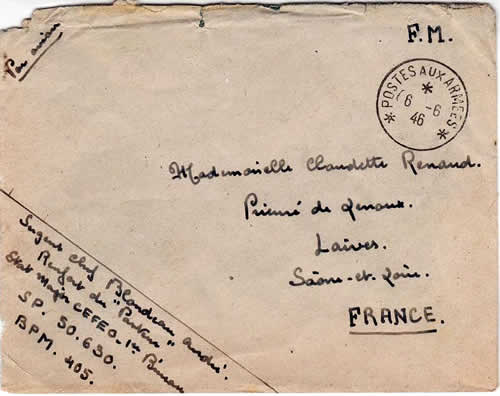 Par avion
F.M.
* POSTES AUX ARMÉES *
*
6 -6
46
Mademoiselle Claudette Renaud.
Prieuré de Lenoux.
Laives.
Saône-et-Loire.
FRANCE.
Sergent Chef Blondeau André.
Renfort du "Pasteur"
Etat Major CEFEO - 1er Bureau
SP. 50.630.
BPM. 405.